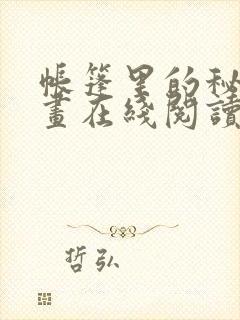 帳篷里的秘
畫在綫閱讀
哲弘